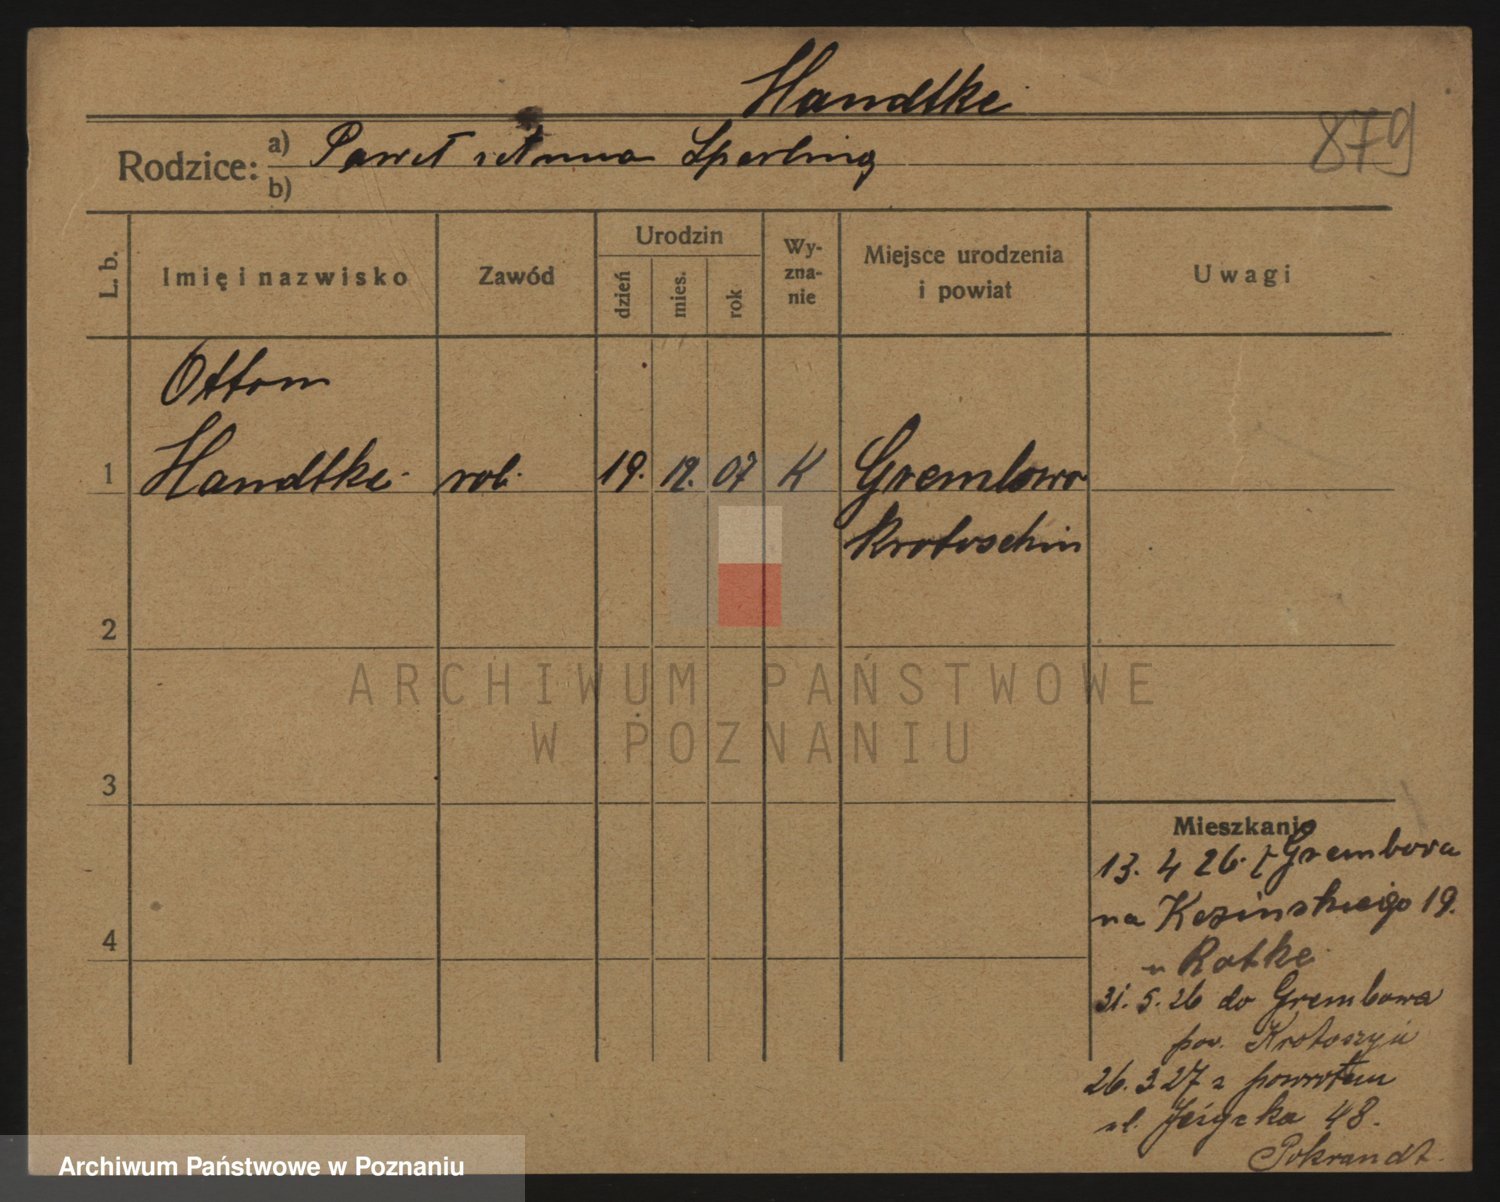 Handtke
879
Rodzice: a) Paweł i Anna Sperling
b)
L. b.
Imię i nazwisko
Zawód
Urodzin
dzień
mies.
rok
Wy-
zna-
nie
Miejsce urodzenia
i powiat
Uwagi
Otton
1 Handtke rob. 19. 12. 07 K Grembowo
Krotoschin
2
3
4
Mieszkanie
13. 4 26. z Grembowa
na 19.
u Ratke
31. 5. 26 do Grembowa
pow. Krotoszyn
26. 3 27 z powrotem
ul. 48.
Pokrandt.
ARCHIWUM PAŃSTWOWE
W POZNANIU
Archiwum Państwowe w Poznaniu